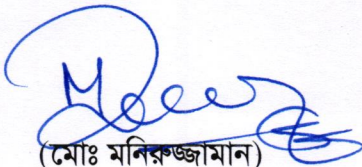 (মোঃ মনিরুজ্জামান)